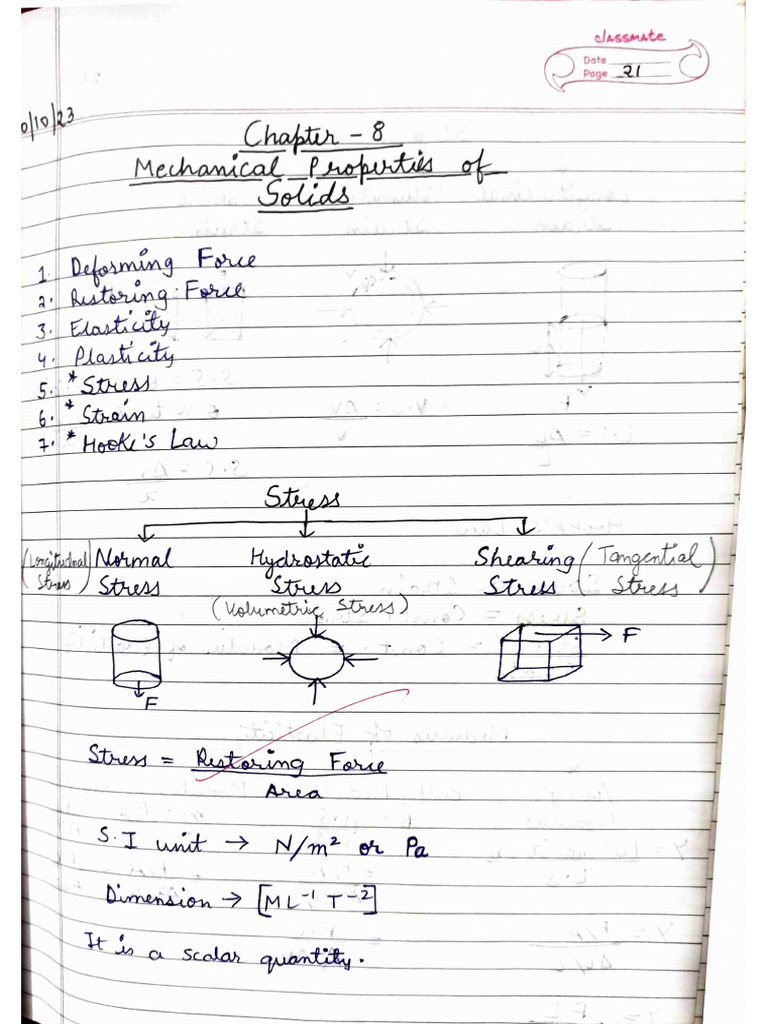 classmate
Date
Page 21
0/10/23
Chapter - 8
Mechanical Properties of
Solids
1. Deforming Force
2. Restoring Force
3. Elasticity
4. Plasticity
5. *Stress
6. *Strain
7. *Hooke's Law
Stress
(Longitudinal Stress) Normal Stress
Hydrostatic Stress
(Volumetric Stress)
Shearing Stress (Tangential Stress)
F
F
Stress = Restoring Force
Area
S.I unit → N/m² or Pa
Dimension → [ML⁻¹ T⁻²]
It is a scalar quantity.